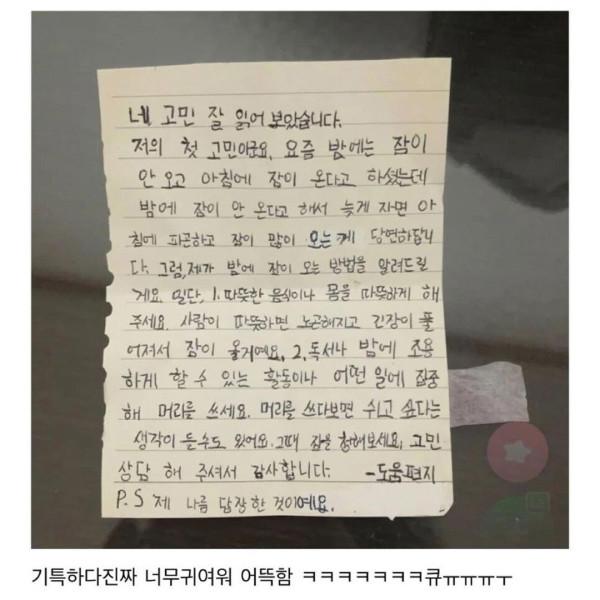 네 고민 잘 읽어 보았습니다.
저의 첫 고민이군요. 요즘 밤에는 잠이
안 오고 아침에 잠이 온다고 하셨는데
밤에 잠이 안 온다고 해서 늦게 자면 아
침에 피곤하고 잠이 많이 오는게 당연하답니
다. 그럼, 제가 밤에 잠이 오는 방법을 알려드릴
게요. 일단, 1. 따뜻한 음식이나 몸을 따뜻하게 해
주세요. 사람이 따뜻하면 노곤해지고 긴장이 풀
어져서 잠이 올거예요. 2. 독서나 밤에 조용
하게 할 수 있는 활동이나 어떤 일에 집중
해 머리를 쓰세요. 머리를 쓰다보면 쉬고 싶다는
생각이 든수도 있어요. 그때 잠을 청해보세요. 고민
상담 해 주셔서 감사합니다. -도움편지
P.S 제 나름 답장한 것이예요.
기특하다진짜 너무귀여워 어뜩함 ㅋㅋㅋㅋㅋㅋㅋ큐ㅠㅠㅠㅜ